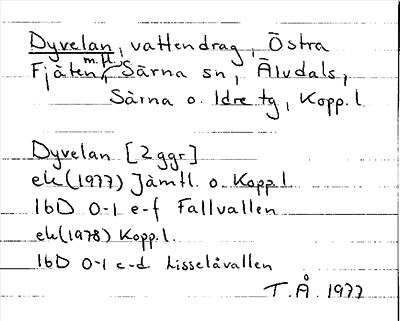 Dyvelan, vattendrag, Östra
Fjäten m.fl., Särna sn, Älvdals,
Särna o. Idre tg, Kopp.l.
Dyvelan [2 ggr]
ek(1977) Jämtl. o. Kopp.l.
16D 0-1 e-f Fallvallen
ek(1978) Kopp.l.
16D 0-1 c-d Lisselåvallen
T.Å. 1977